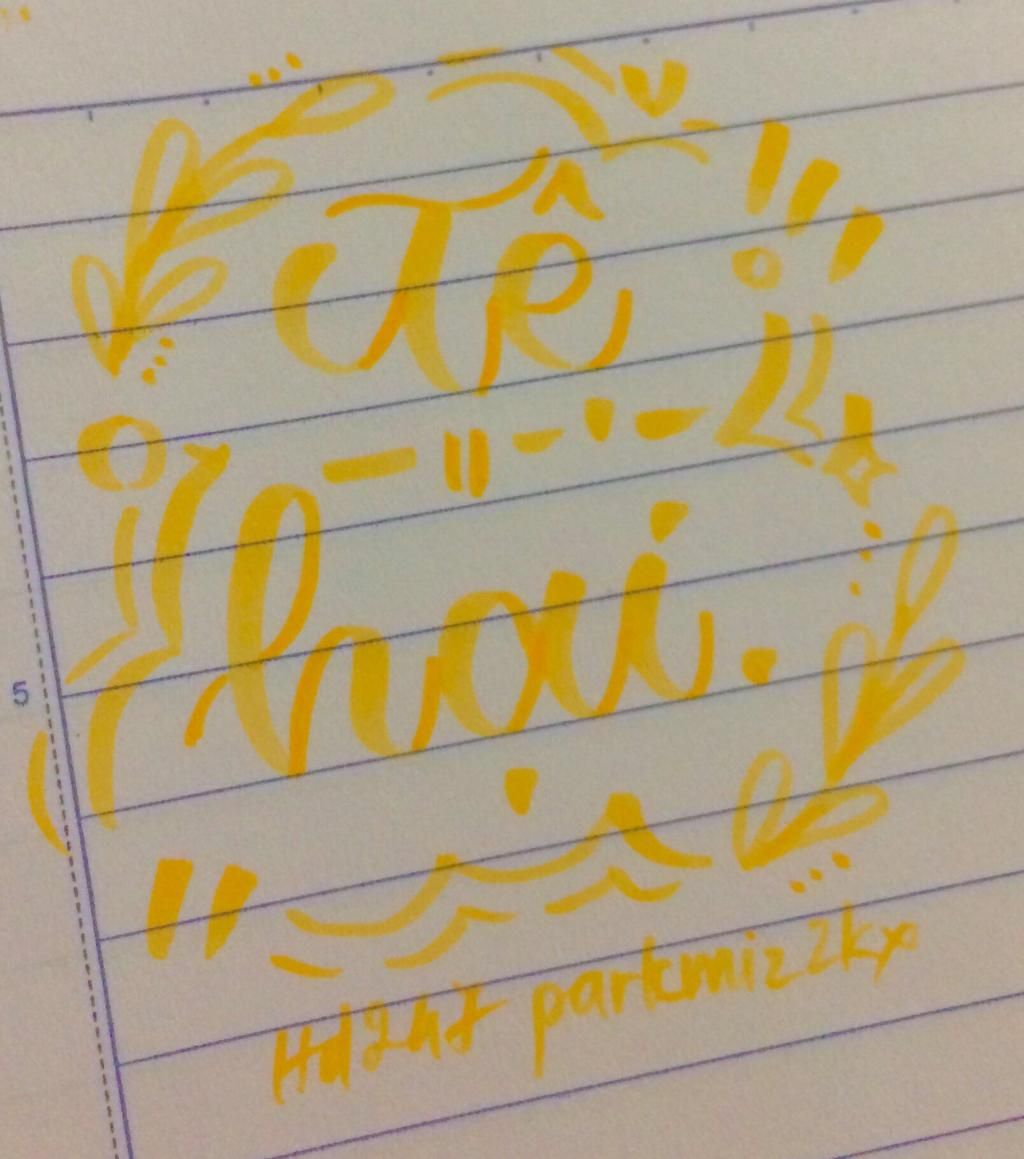 Tệ
hại.
5
Hd247 parkmiz2kx